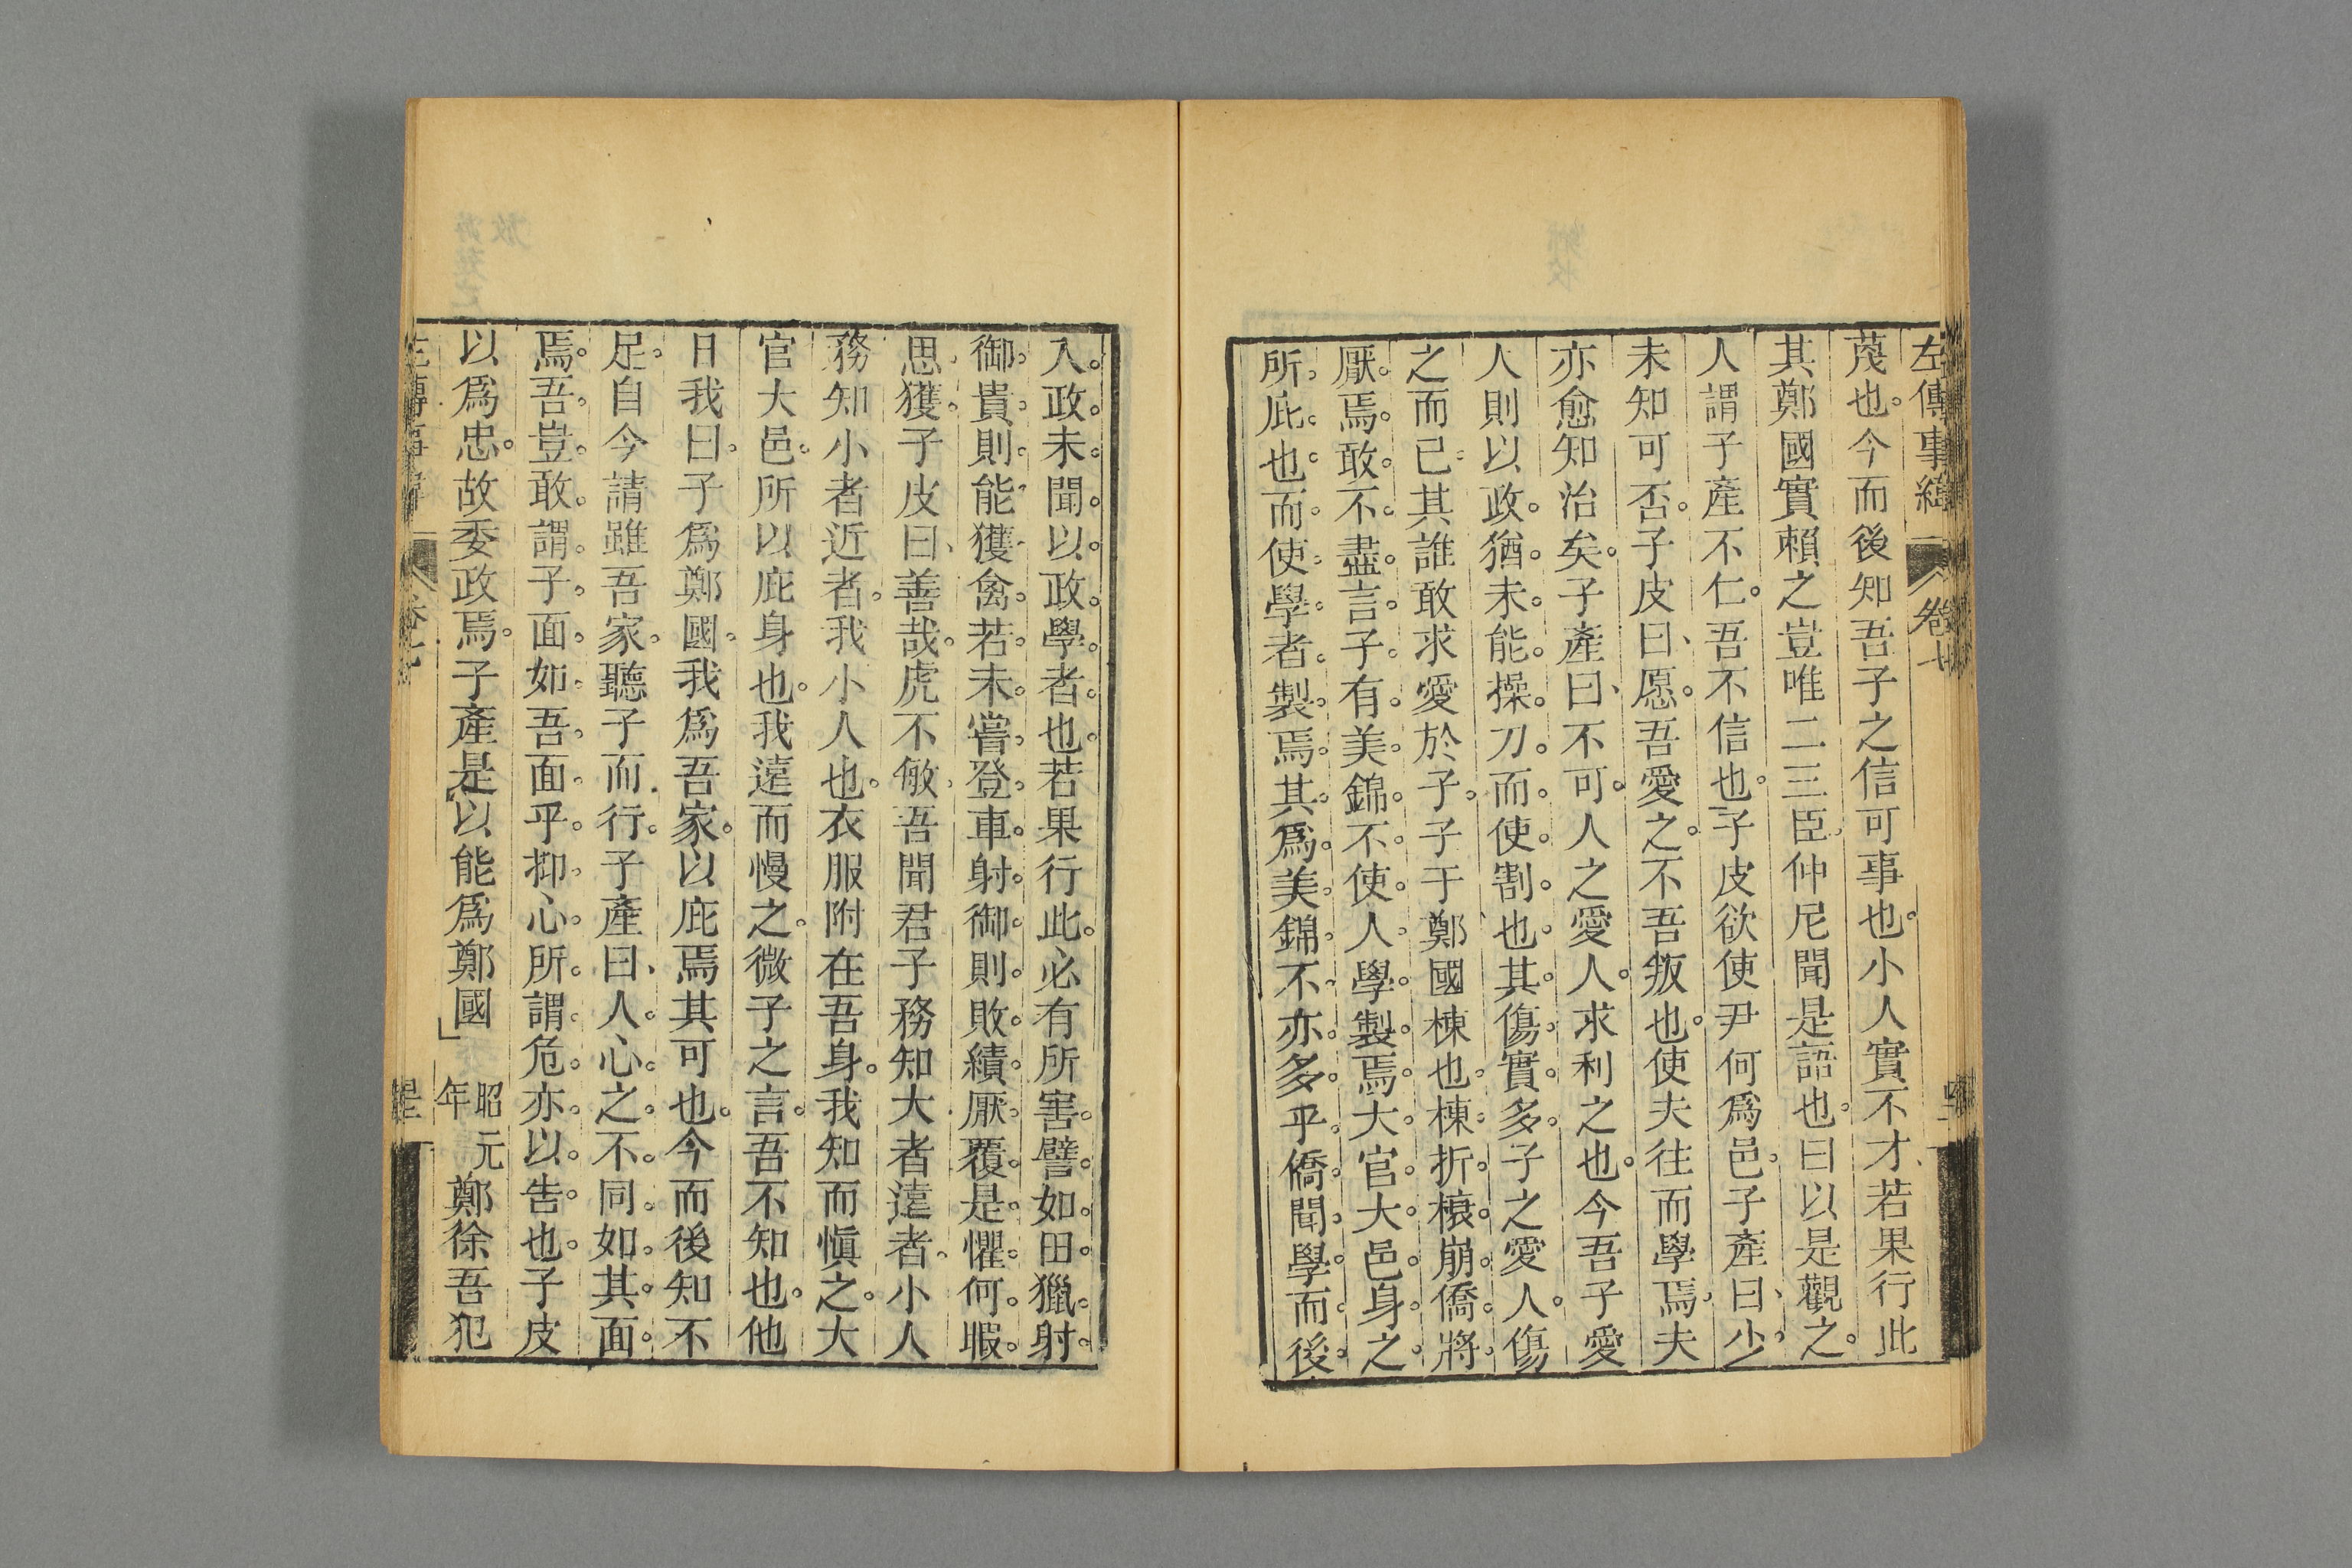 左傳事緯 卷七
蔑也。今而後知吾子之信可事也。小人實不才、若果行此
其鄭國實賴之豈唯二三臣、仲尼聞是語也、曰以是觀之。
人謂子產不仁。吾不信也。子皮欲使尹何爲邑。子產曰、少。
未知可否。子皮曰、愿。吾愛之。不吾叛也。使夫往而學焉、夫
亦愈知治矣。子產曰、不可。人之愛人。求利之也。今吾子愛
人則以政。猶。未。能。操。刀。而。使。割。也。其。傷。實。多。子之愛人。傷
之而已。其誰敢求愛於子。子于鄭國棟也、棟。折。榱。崩。僑。將。
厭。焉。敢。不。盡。言。子。有。美。錦。不。使。人。學。製。焉。大。官。大。邑。身。之。
所。庇。也。而。使。學。者。製。焉。其。爲。美。錦。不。亦。多。乎。僑。聞。學。而。後。
入。政。未。聞。以。政。學。者。也。若果行此。必有所害。譬。如。田。獵。射。
御。貴。則。能。獲。禽。若。未。嘗。登。車。射。御。則。敗。績。厭。覆。是。懼。何。暇。
思。獲。子皮曰、善哉。虎不敏、吾聞君子務知大者遠者、小人
務知小者近者。我小人也。衣服附在吾身。我知而愼之。大
官大邑。所以庇身也。我遠而慢之。微子之言。吾不知也。他
日我曰。子爲鄭國。我爲吾家。以庇焉其可也。今而後知不
足。自今請雖吾家。聽子而行。子產曰、人。心。之。不。同。如。其。面。
焉。吾。豈。敢。謂。子。面。如。吾。面。乎。抑。心。所。謂。危。亦。以。告。也。子皮
以爲忠。故委政焉。子產是以能爲鄭國」昭元年鄭徐吾犯